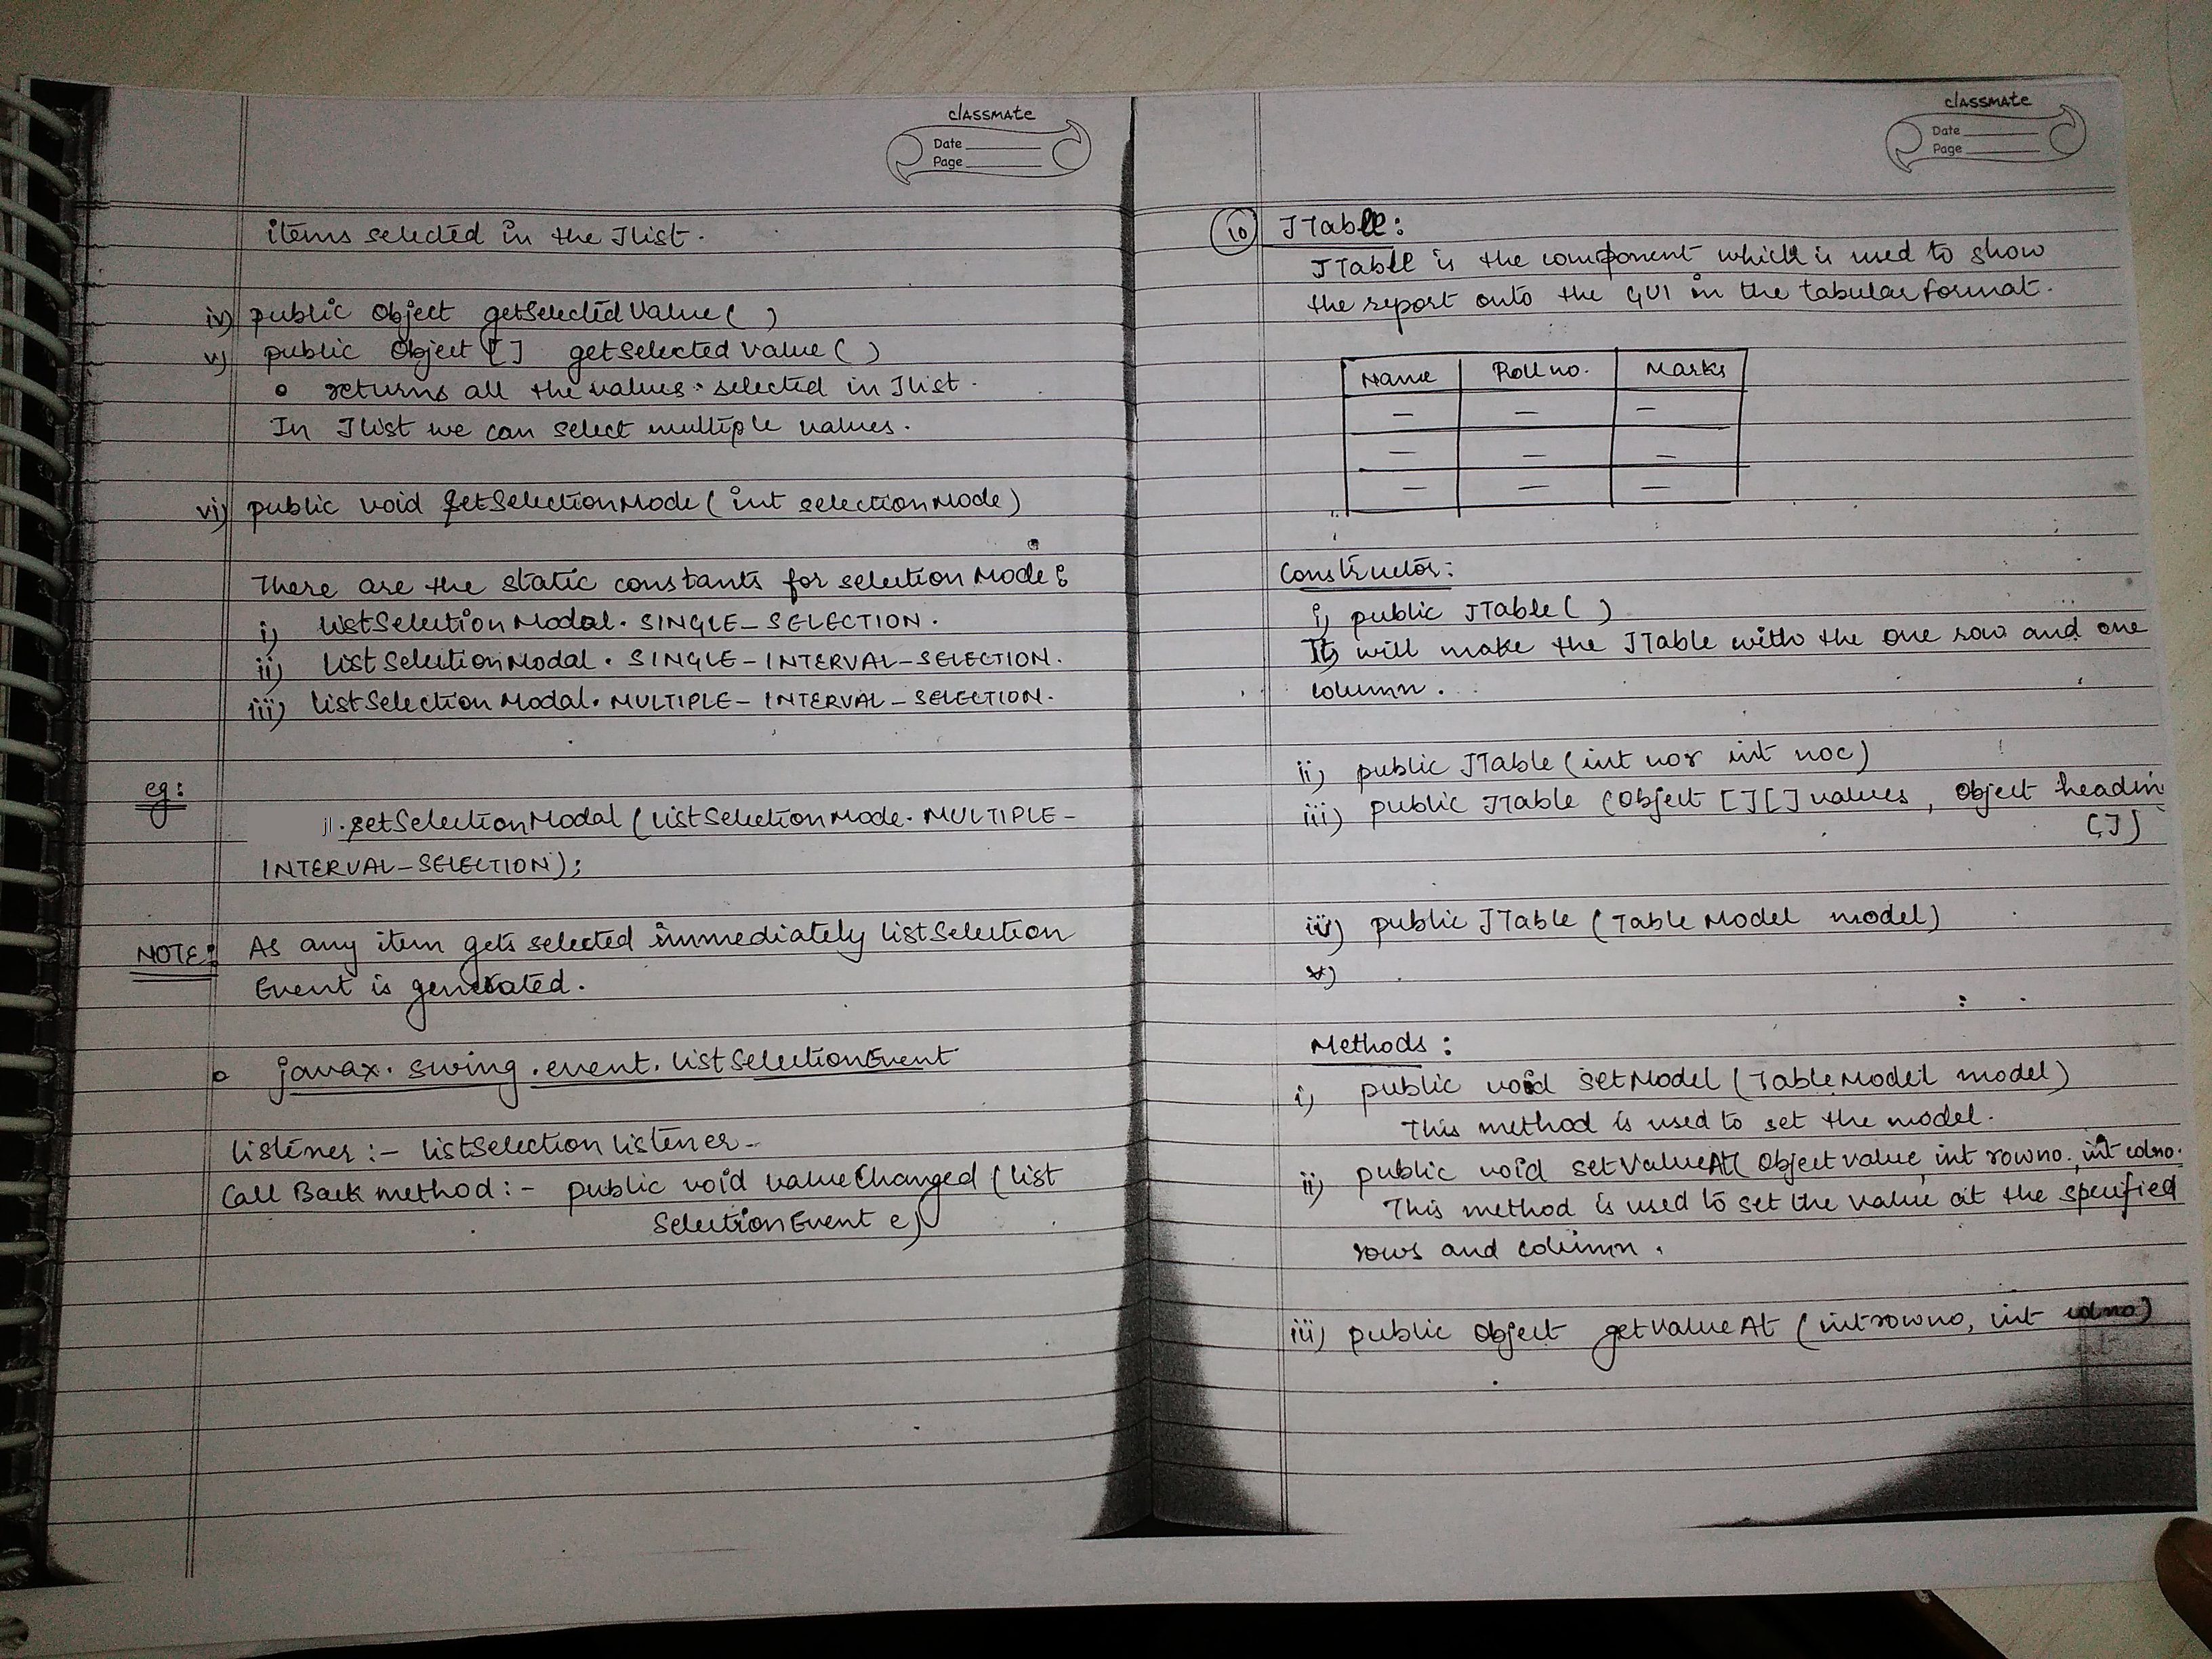 classmate
Date
Page
items selected in the Jlist.
iv) public Object getSelectedValue( )
v) public Object [] getSelected value ( )
o returns all the values selected in Jlist.
In Jlist we can select multiple values.
vi) public void setSelectionMode ( int selectionMode)
There are the static constants for selection Mode :
i) listSelectionModal. SINGLE_SELECTION.
ii) listSelectionModal. SINGLE-INTERVAL-SELECTION.
iii) listSelectionModal. MULTIPLE-INTERVAL-SELECTION.
eg:
jl.setSelectionModal (listSelectionMode. MULTIPLE-
INTERVAL-SELECTION);
NOTE: As any item gets selected immediately listSelection
Event is generated.
o javax. swing .event. listSelectionEvent
listener :- listSelection listener-
Call Back method :- public void valueChanged ( list
SelectionEvent e)
classmate
Date
Page
10 JTable:
JTable is the component which is used to show
the report onto the GUI in the tabular format.
Name Roll no. Marks
— — —
— — —
— — —
Constructor:
i) public JTable ( )
It will make the JTable with the one row and one
column.
ii) public JTable (int nor int noc)
iii) public JTable (Object [ ][ ] values , Object headin
[ ])
iv) public JTable ( Table Model model)
v)
Methods :
i) public void setModel (TableModel model)
This method is used to set the model.
ii) public void setValueAt( Object value, int rowno., int colno.
This method is used to set the value at the specified
rows and column.
iii) public Object getValueAt ( int rowno, int colno)